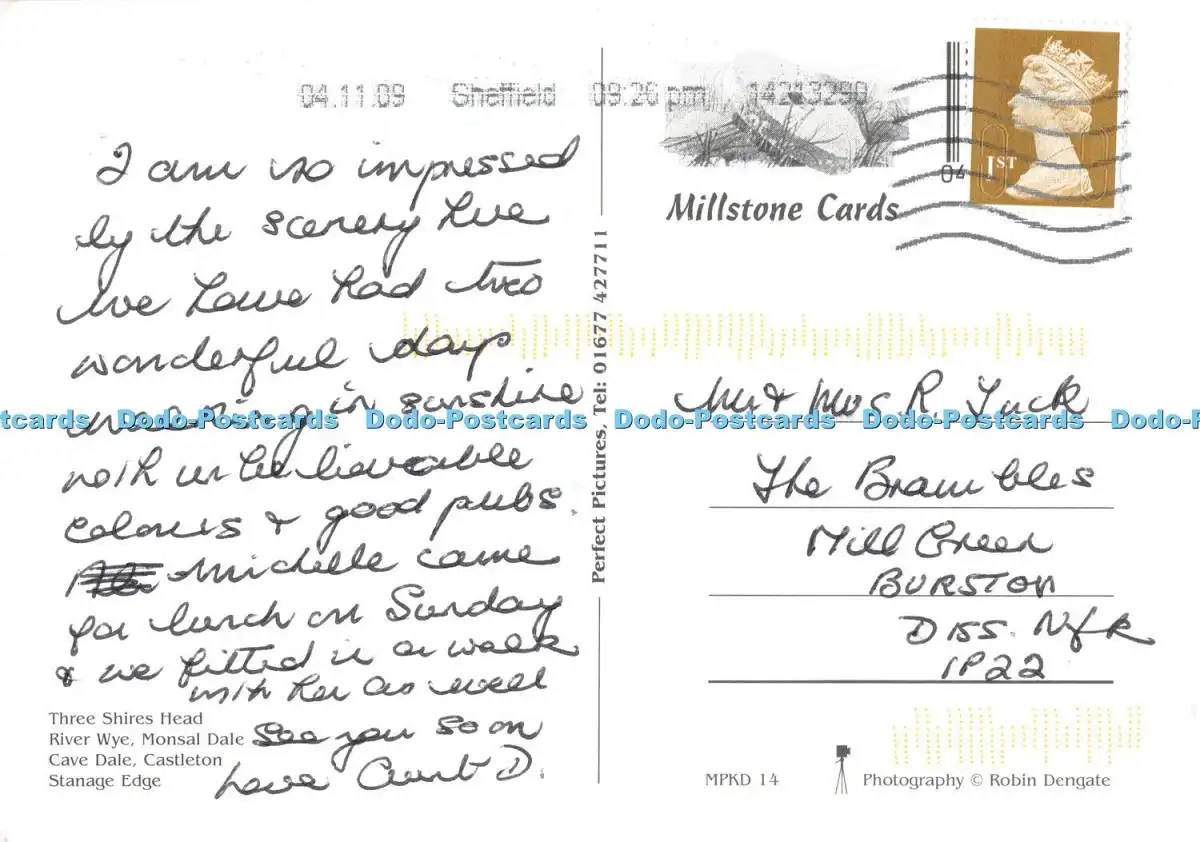 04.11.09 Sheffield 09:26 pm 14213290
I am so impressed
by the scenery here
We have had two
wonderful days
in sunshine
with unbelieveable
colours & good pubs.
Michelle came
for lunch on Sunday
& we fitted in a walk
with her as well
See you soon
Love Aunt D.
Three Shires Head
River Wye, Monsal Dale
Cave Dale, Castleton
Stanage Edge
Perfect Pictures, Tel: 01677 427711
Millstone Cards
04
1ST
Mr & Mrs R. Tuck
The Brambles
Mill Green
BURSTON
DISS. Nfk
IP22
MPKD 14
Photography © Robin Dengate
Postcards Dodo-Postcards Dodo-Postcards Dodo-Postcards Dodo-Postcards Dodo-P